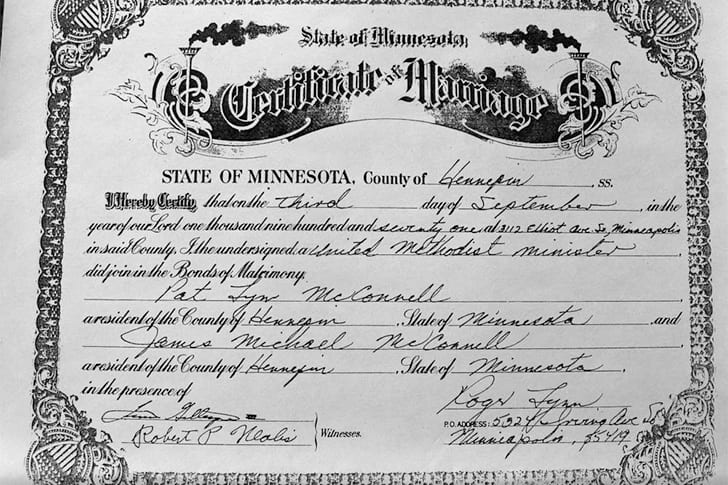 State of Minnesota,
Certificate of Marriage
STATE OF MINNESOTA, County of Hennepin, ss.
I Hereby Certify, that on the third day of September, in the
year of our Lord one thousand nine hundred and seventy one at 3112 Elliot Ave So, Minneapolis
in said County. I, the undersigned, a United Methodist minister
did join in the Bonds of Matrimony,
Pat Lyn McConnell,
a resident of the County of Hennepin, State of Minnesota and
James Michael McConnell
a resident of the County of Hennepin, State of Minnesota,
in the presence of
Roger Lynn
P.O. ADDRESS: Irving Ave So
Robert P
Witnesses.
Minneapolis, 55419